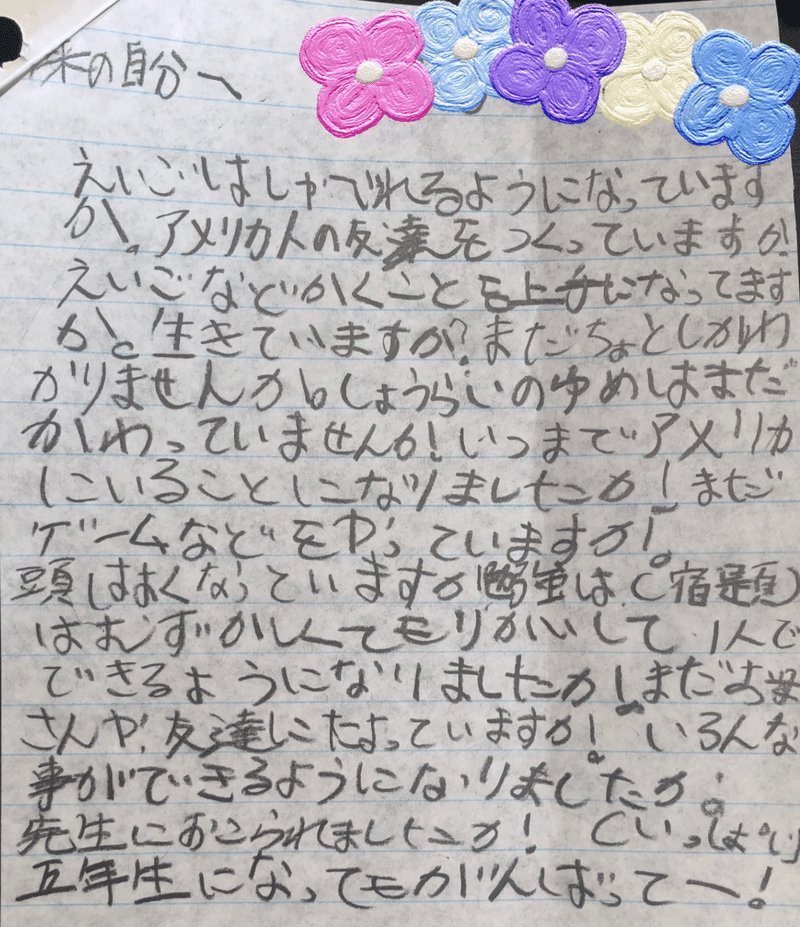 来の自分へ
えいごはしゃべれるようになっています
か。アメリカ人の友達をつくっていますか!
えいごなどかくことを上手になってます
か。生きていますか?まだちょとしかわ
かりませんか。しょうらいのゆめはまだ
かわっていませんか!いつまでアメリカ
にいることになりましたか!まだ
ゲームなどをやっていますか!。
頭はよくなっていますか!勉強は(宿題)
はむずかしくてもりかいして1人で
できるようになりましたか!まだお母
さんや、友達にたよっていますか!。いろんな
事ができるようになりましたか!。
先生におこられましたか! (いっぱい)
五年生になってもがんばってー!